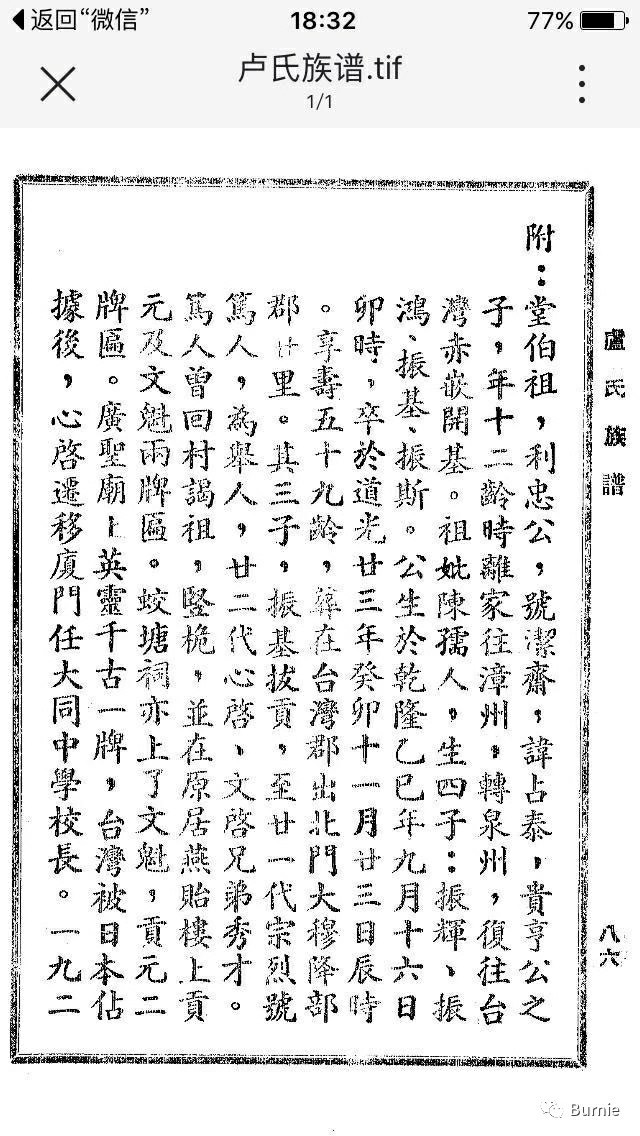 返回“微信”
18:32
77%
卢氏族谱.tif
1/1
盧氏族譜
八六
附：堂伯祖，利忠公，號潔齋，諱占泰，貴亨公之
子，年十二齡時離家往漳州，轉泉州，復往台
灣赤嵌開基。祖妣陳孺人，生四子：振輝、振
鴻、振基、振斯。公生於乾隆乙巳年九月十六日
卯時，卒於道光廿三年癸卯十一月廿三日辰時
。享壽五十九齡，葬在台灣郡出北門大穆降部
郡廿里。其三子，振基拔貢，至廿一代宗烈號
篤人，為舉人，廿二代心啓、文啓兄弟秀才。
篤人曾回村謁祖，竪桅，並在原居燕貽樓上貢
元及文魁兩牌匾。蛟塘祠亦上了文魁，貢元二
牌區。廣聖廟上英靈千古一牌，台灣被日本佔
據後，心啓遷移廈門任大同中學校長。一九二
Burnie